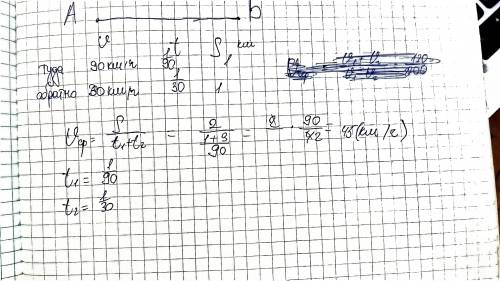 A B
v t S, км
туда 90 км/ч 1/90 1
обратно 30 км/ч 1/30 1
Vср = S/(t₁+t₂) = 2/((1+3)/90) = 2 · 90/4 = 45 (км/ч)
t₁ = 1/90
t₂ = 1/30